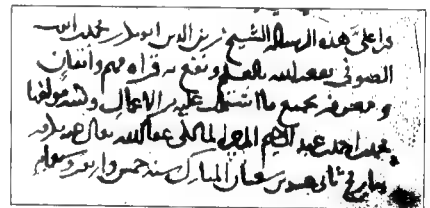 قرا علي هذه الرسالة الشيخ زين الدين ابو بكر بن عبد الله
الصوفي نفعه الله بالعلم ونفع به قراه فهم واتقان
ومعرفه بجميع ما اشتملت عليه من الاعمال وكتبه مولفها
محمد احمد بن عبد الرحيم المالكي عفا الله تعالى عنه
بتاريخ ثاني عشرين شعبان المبارك سنه خمس واربعين وسبعمايه